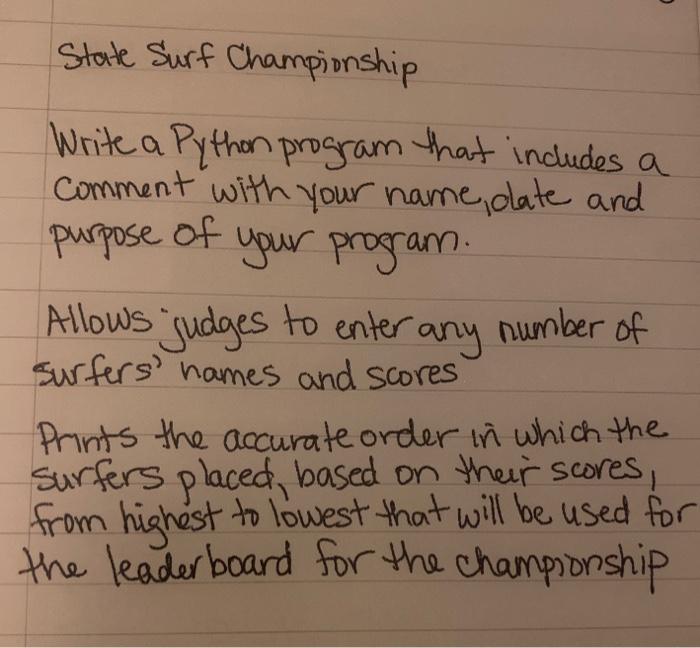 State Surf Championship
Write a Python program that includes a
comment with your name, date and
purpose of your program.
Allows judges to enter any number of
surfers' names and scores
Prints the accurate order in which the
surfers placed, based on their scores,
from highest to lowest that will be used for
the leaderboard for the championship